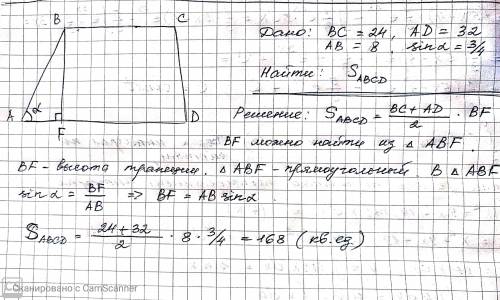 B C
A α D
F
Дано: BC = 24, AD = 32
AB = 8, sin α = 3/4
Найти: S_ABCD
Решение: S_ABCD = (BC + AD)/2 · BF
BF можно найти из △ ABF.
BF - высота трапеции. △ ABF - прямоугольный. В △ ABF
sin α = BF/AB => BF = AB sin α.
S_ABCD = (24 + 32)/2 · 8 · 3/4 = 168 (кв.ед.)
CS Сканировано с CamScanner